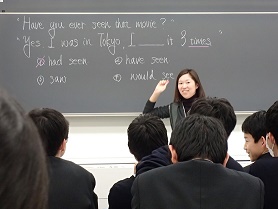 "Have you ever seen that movie?"
"Yes. I was in Tokyo, I ___ it 3 times."
② had seen ④ have seen
① saw ③ would see